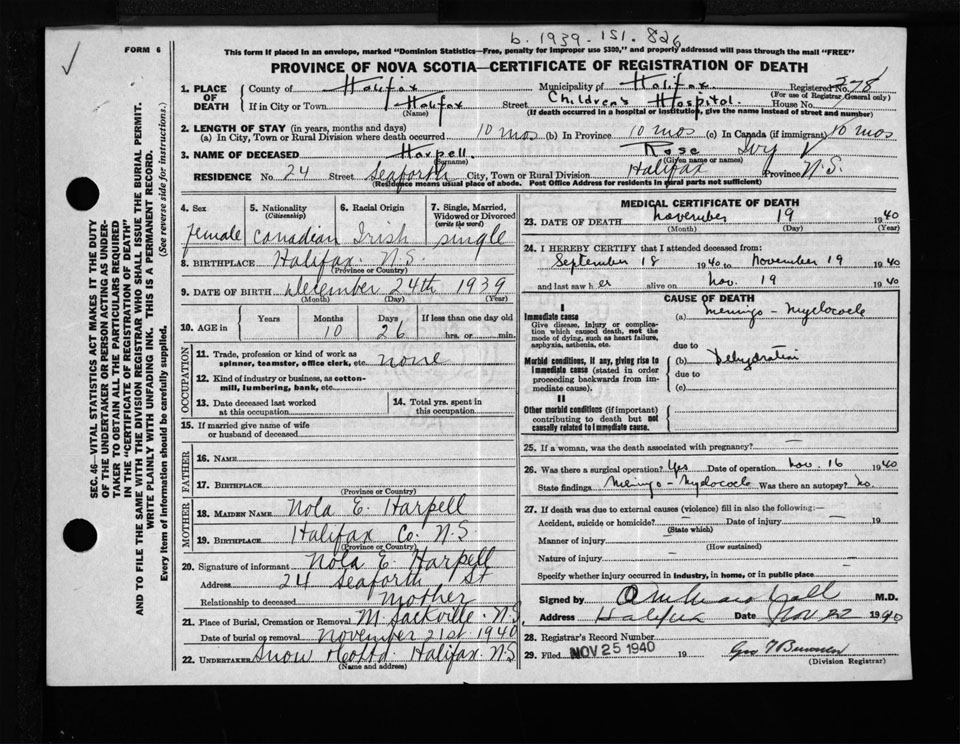 b. 1939. 151. 826
FORM 6
This form if placed in an envelope, marked "Dominion Statistics—Free, penalty for improper use $300," and properly addressed will pass through the mail "FREE"
PROVINCE OF NOVA SCOTIA—CERTIFICATE OF REGISTRATION OF DEATH
SEC. 46—VITAL STATISTICS ACT MAKES IT THE DUTY
OF THE UNDERTAKER OR PERSON ACTING AS UNDER-
TAKER TO OBTAIN ALL THE PARTICULARS REQUIRED
IN THE "CERTIFICATE OF REGISTRATION OF DEATH"
AND TO FILE THE SAME WITH THE DIVISION REGISTRAR WHO SHALL ISSUE THE BURIAL PERMIT.
WRITE PLAINLY WITH UNFADING INK. THIS IS A PERMANENT RECORD.
Every item of information should be carefully supplied. (See reverse side for instructions.)
1. PLACE OF DEATH
County of Halifax Municipality of Halifax Registered No. 278
(For use of Registrar General only)
If in City or Town Halifax Street Children's Hospital. House No.
(Name) (If death occurred in a hospital or institution, give the name instead of street and number)
2. LENGTH OF STAY (in years, months and days)
(a) In City, Town or Rural Division where death occurred 10 mos (b) In Province 10 mos (c) In Canada (if immigrant) 10 mos
3. NAME OF DECEASED Harpell. Rose Ivy
(Surname) (Given name or names)
RESIDENCE No. 24 Street Seaforth City, Town or Rural Division Halifax Province N.S.
(Residence means usual place of abode. Post Office Address for residents in rural parts not sufficient)
4. Sex female
5. Nationality (Citizenship) Canadian
6. Racial Origin Irish
7. Single, Married, Widowed or Divorced (write the word) single
8. BIRTHPLACE Halifax N.S.
(Province or Country)
9. DATE OF BIRTH December 24th 1939
(Month) (Day) (Year)
10. AGE in Years Months 10 Days 26 If less than one day old hrs. or min.
OCCUPATION
11. Trade, profession or kind of work as
spinner, teamster, office clerk, etc. none
12. Kind of industry or business, as cotton-
mill, lumbering, bank, etc.
13. Date deceased last worked
at this occupation
14. Total yrs. spent in
this occupation
15. If married give name of wife
or husband of deceased
FATHER
16. NAME
17. BIRTHPLACE
(Province or Country)
MOTHER
18. MAIDEN NAME Nola E. Harpell
19. BIRTHPLACE Halifax Co. N.S.
(Province or Country)
20. Signature of informant Nola E. Harpell
Address 24 Seaforth St
Relationship to deceased mother
21. Place of Burial, Cremation or Removal M. Sackville. N.S.
Date of burial or removal November 21st 1940
22. UNDERTAKER Snow Halifax N.S
(Name and address)
MEDICAL CERTIFICATE OF DEATH
23. DATE OF DEATH November 19 1940
(Month) (Day) (Year)
24. I HEREBY CERTIFY that I attended deceased from:
September 18 1940 to November 19 1940
and last saw her alive on Nov. 19 1940
CAUSE OF DEATH
I
Immediate cause (a) Meningo-Myelocoele
Give disease, injury or complica-
tion which caused death, not the
mode of dying, such as heart failure,
asphyxia, asthenia, etc.
due to
Morbid conditions, if any, giving rise to
immediate cause (stated in order
proceeding backwards from im-
mediate cause).
(b) Dehydration
due to
(c)
II
Other morbid conditions (if important)
contributing to death but not
causally related to immediate cause.
25. If a woman, was the death associated with pregnancy? —
26. Was there a surgical operation? Yes Date of operation Nov. 16 1940
State findings Meningo-Myelocoele Was there an autopsy? no.
27. If death was due to external causes (violence) fill in also the following:—
Accident, suicide or homicide? — Date of injury — 19
(State which)
Manner of injury —
(How sustained)
Nature of injury —
Specify whether injury occurred in industry, in home, or in public place
Signed by M.D.
Address Halifax Date Nov 22 1940
28. Registrar's Record Number
29. Filed NOV 25 1940 19
(Division Registrar)